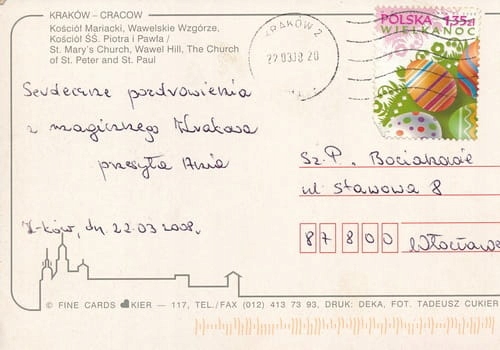 KRAKÓW – CRACOW
Kościół Mariacki, Wawelskie Wzgórze,
Kościół ŚŚ. Piotra i Pawła /
St. Mary's Church, Wawel Hill, The Church
of St. Peter and St. Paul
KRAKÓW 2
22.03.08 20
POLSKA 1,35zł
WIELKANOC
Serdeczne pozdrowienia
z magicznego Krakowa
przesyła Ania
K-ków, dn. 22.03.2008r.
Sz. P.
ul. Stawowa 8
87800
© FINE CARDS KIER — 117, TEL./FAX (012) 413 73 93, DRUK: DEKA, FOT. TADEUSZ CUKIER